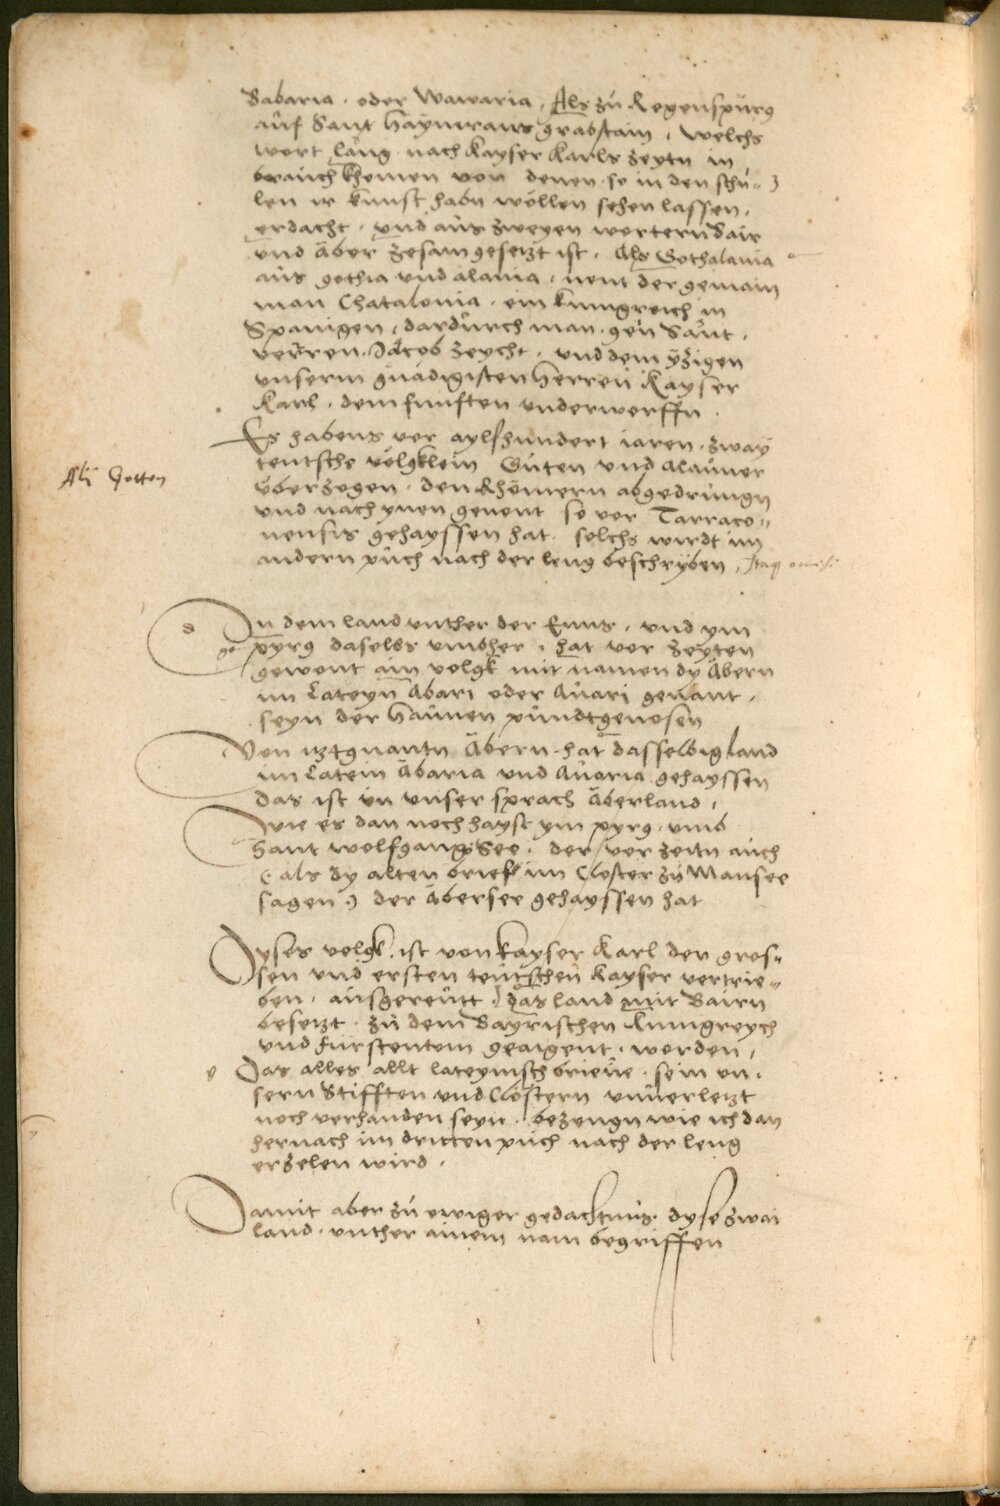 Babaria · oder Wawaria, Als zů Regenspürg
auf Sant Haymrans grabstain, welchs
wort lang nach Kayser Karls zeytn in
brauch khomen von denen so in den schů-
len ir kunst habn wöllen sehen lassen,
erdacht, und aus zweyen wortern Bair
und Aber zesam gesetzt ist. Als Gothalania
aus gothia und alania, nent der gemain
man Chatalonia · ein kunigreich in
Spanigen, dardurch man gen Sant
verren Jacob zeycht, und dem yzigen
unserm gnädigisten herren Kayser
Karl dem funften underworffn.
Es habens vor aylfhundert iaren zway
teutsche völgklein Guten und Alauner
überzogen den Rhömern abgedrungn
und nach ynen genent so vor Tarraco-
nensis gehayssen hat. solchs wirdt im
andern půch nach der leng beschryben,
Alt Gotten
d
In dem land unther der Enns, und ym
pyrg daselbs umbher, hat vor zeyten
gewont ain volgk mit namen dy Abern
im Lateyn Abari oder Auari genant,
seyn der Haunen pundtgenosen
Von iztgnantn Abern hat dasselbig land
im Latein Abaria und Auaria gehayssen
das ist in unser sprach Aberland,
wie es dan noch hayst ym pyrg umb
Sant Wolfgangs See, der vor zeitn auch
(als dy alten brief im Closter zů Mansee
sagen) der Abersee gehayssen hat
Dyses volgk ist von Kayser Karl den gros-
sen und ersten teutschen Kayser vertrie-
ben, ausgereutt, das land mit Bairn
besetzt zů dem Bayrischen Kunigreych
und furstentom geaigent worden,
e Das alles allt lateynisch brieue so in un-
sern Stifften und Clöstern unuerletzt
noch verhanden seyn, bezeugn wie ich dan
hernach im dritten půch nach der leng
erzelen wird.
Damit aber zů ewiger gedachtnus dyse zwai
land unther ainem nam begriffen